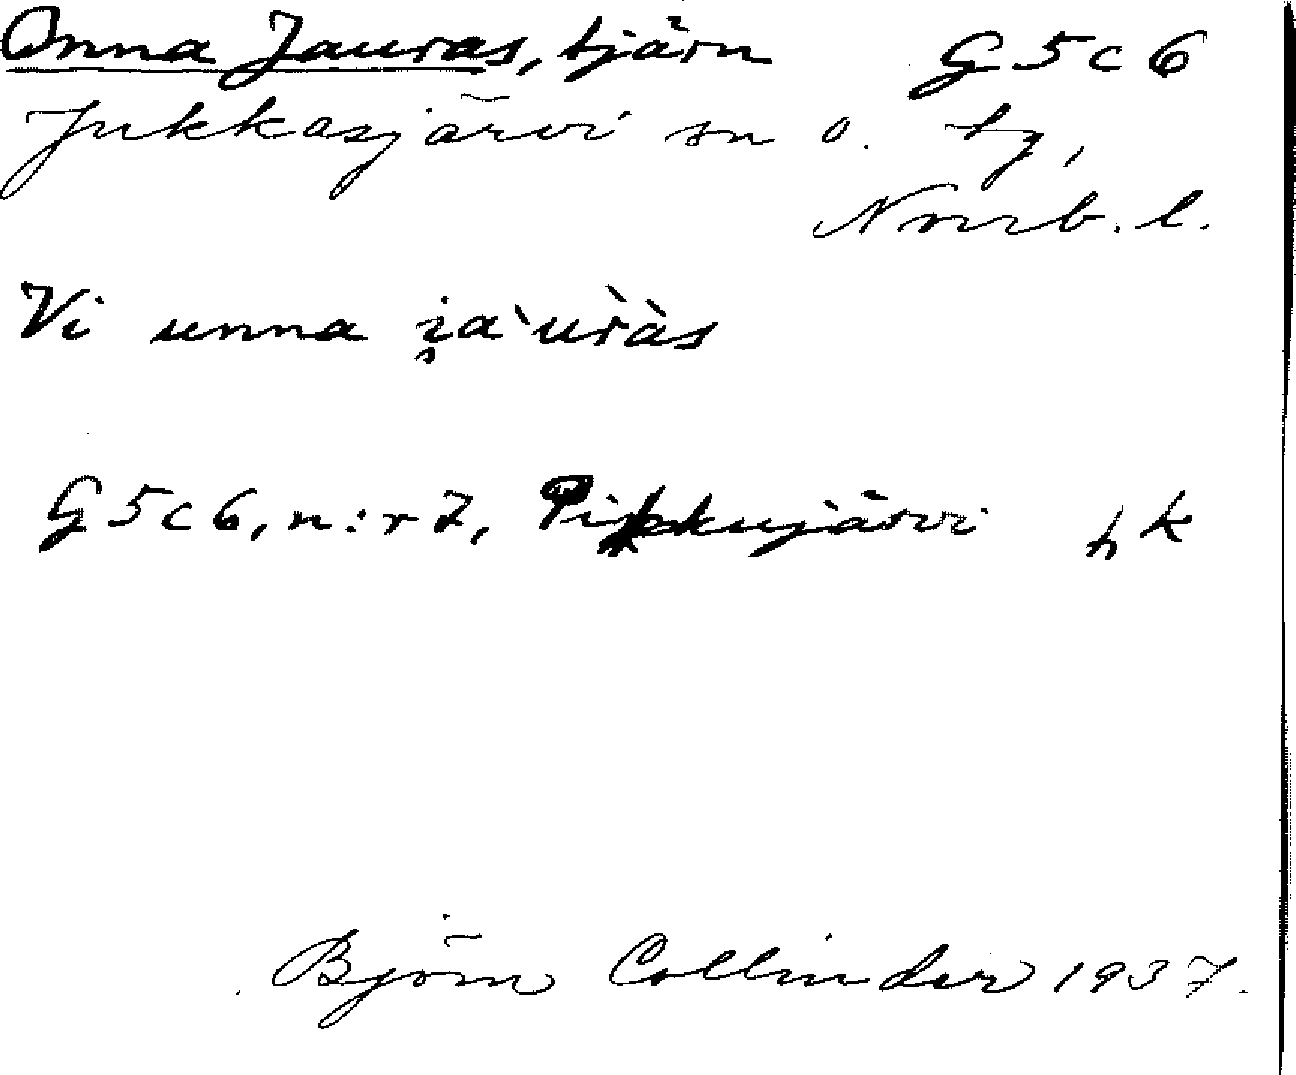 Onna Jauras, tjärn G 5 c 6
Jukkasjärvi sn o. tg,
Norrb. l.
Vi unna
G 5 c 6, n:r 7, Pikkujärvi hk
Björn Collinder 1937.